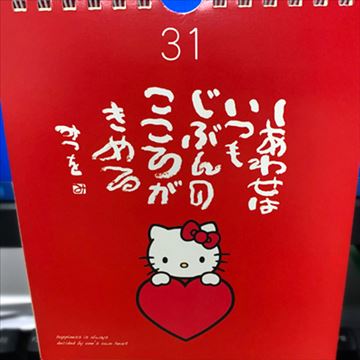 31
しあわせは
いつも
じぶんの
こころが
きめる
みつを
happiness is always
decided by one's own heart